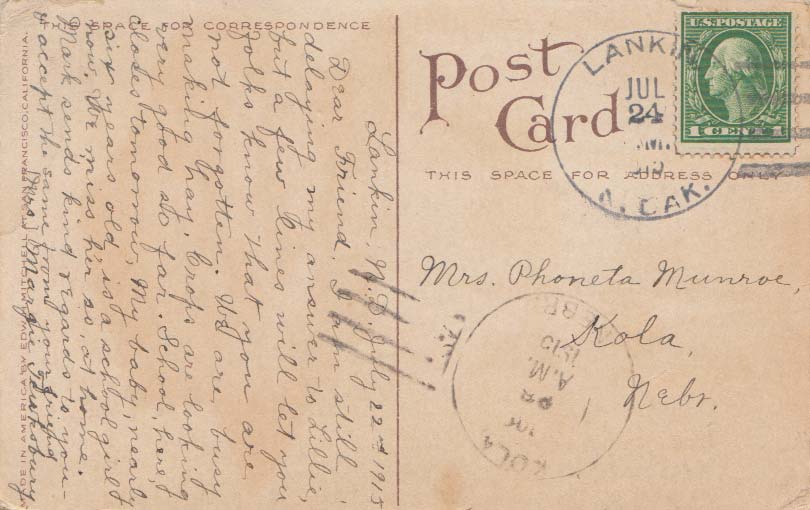 THIS SPACE FOR CORRESPONDENCE
Lankin, N.D. July 22nd 1915
Dear Friend, I am still
delaying my answer to Lillie,
but a few lines will let you
folks know that you are
not forgotten. We are busy
making hay. Crops are looking
very good so far. School here,
closes tomorrow, My baby, nearly
six years old, is a school girl
now. We miss her so, at home.
Mark sends kind regards to you—
& accept the same from your friend
Mrs Margie
MADE IN AMERICA BY EDW. H. MITCHELL SAN FRANCISCO, CALIFORNIA.
Post
Card
THIS SPACE FOR ADDRESS ONLY
U.S. POSTAGE
1 CENT 1
LANKIN
JUL
24
N. DAK.
Mrs. Phoneta Munroe,
Kola,
Nebr.
KOLA,
A.M.
1915
NEBR.